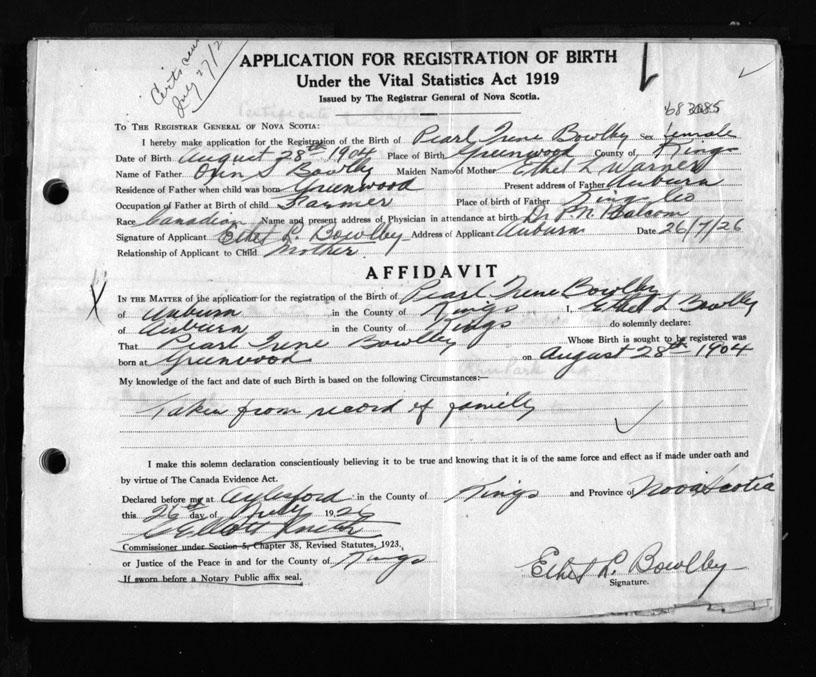 Certs issued
July 27/26
APPLICATION FOR REGISTRATION OF BIRTH
Under the Vital Statistics Act 1919
Issued by The Registrar General of Nova Scotia.
TO THE REGISTRAR GENERAL OF NOVA SCOTIA:
I hereby make application for the Registration of the Birth of Pearl Irene Bowlby Sex female
Date of Birth August 28th 1904 Place of Birth Greenwood County of Kings
Name of Father Orin S Bowlby Maiden Name of Mother Ethel L Warner
Residence of Father when child was born Greenwood Present address of Father Auburn
Occupation of Father at Birth of child Farmer Place of birth of Father Kings Co
Race Canadian Name and present address of Physician in attendance at birth Dr P. N. Balcom
Signature of Applicant Ethel L. Bowlby Address of Applicant Auburn Date 26/7/26
Relationship of Applicant to Child Mother
AFFIDAVIT
X IN THE MATTER of the application for the registration of the Birth of Pearl Irene Bowlby
of Auburn in the County of Kings I, Ethel L Bowlby
of Auburn in the County of Kings do solemnly declare:
That Pearl Irene Bowlby Whose Birth is sought to be registered was
born at Greenwood on August 28th 1904
My knowledge of the fact and date of such Birth is based on the following Circumstances:—
Taken from record of family
I make this solemn declaration conscientiously believing it to be true and knowing that it is of the same force and effect as if made under oath and
by virtue of The Canada Evidence Act.
Declared before me at Aylesford in the County of Kings and Province of Nova Scotia
this 26th day of July 1926
Commissioner under Section 5, Chapter 38, Revised Statutes, 1923,
or Justice of the Peace in and for the County of Kings
If sworn before a Notary Public affix seal.
Ethel L. Bowlby
Signature.